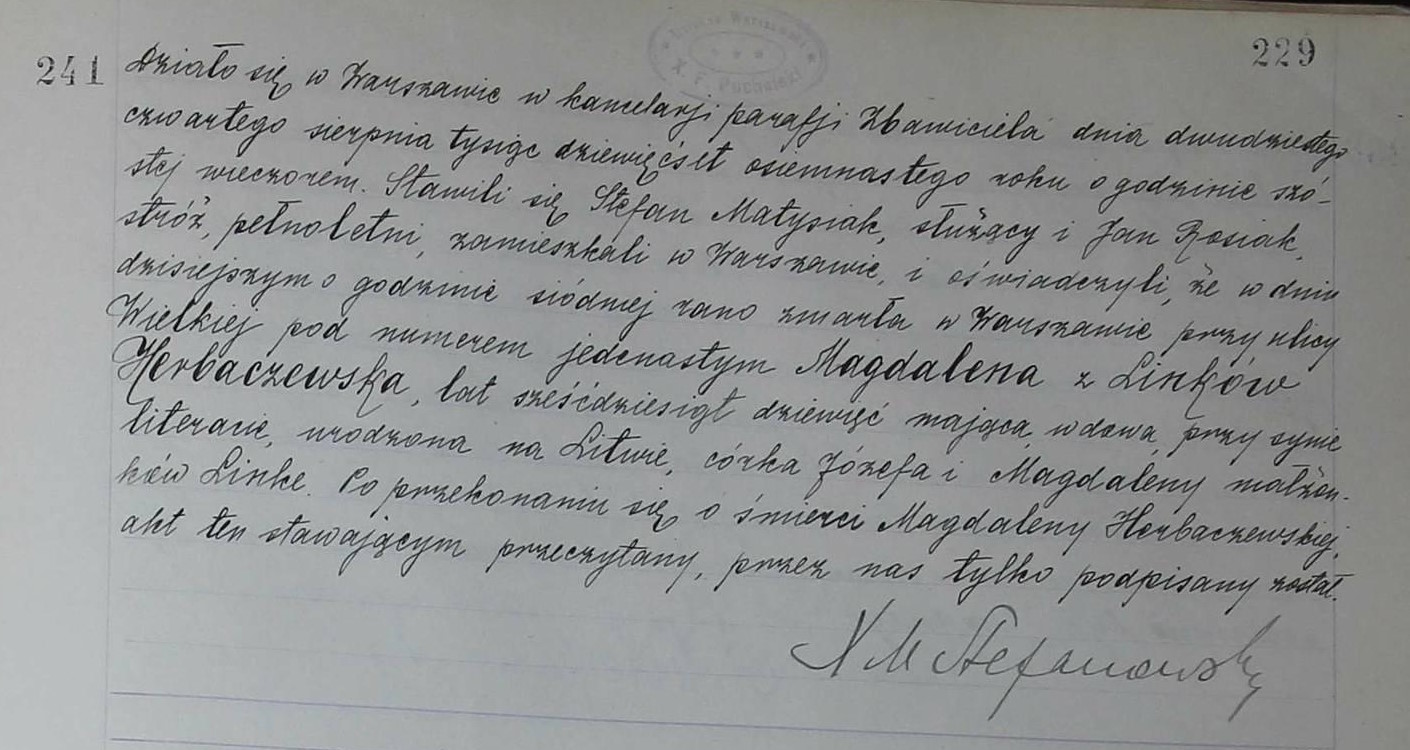 229
241 Działo się w Warszawie w kancelarji parafji Zbawiciela dnia dwudziestego
czwartego sierpnia tysiąc dziewięćset osiemnastego roku o godzinie szó-
stej wieczorem. Stawili się Stefan Matysiak, służący i Jan Rosiak,
stróż, pełnoletni, zamieszkali w Warszawie, i oświadczyli, że w dniu
dzisiejszym o godzinie siódmej rano zmarła w Warszawie przy ulicy
Wielkiej pod numerem jedenastym Magdalena z Linków
Herbaczewska, lat sześćdziesiąt dziewięć mająca, wdowa, przy synie
literacie, urodzona na Litwie, córka Józefa i Magdaleny małżon-
ków Linke. Po przekonaniu się o śmierci Magdaleny Herbaczewskiej,
akt ten stawającym przeczytany, przez nas tylko podpisany został.
X M Stefanowski